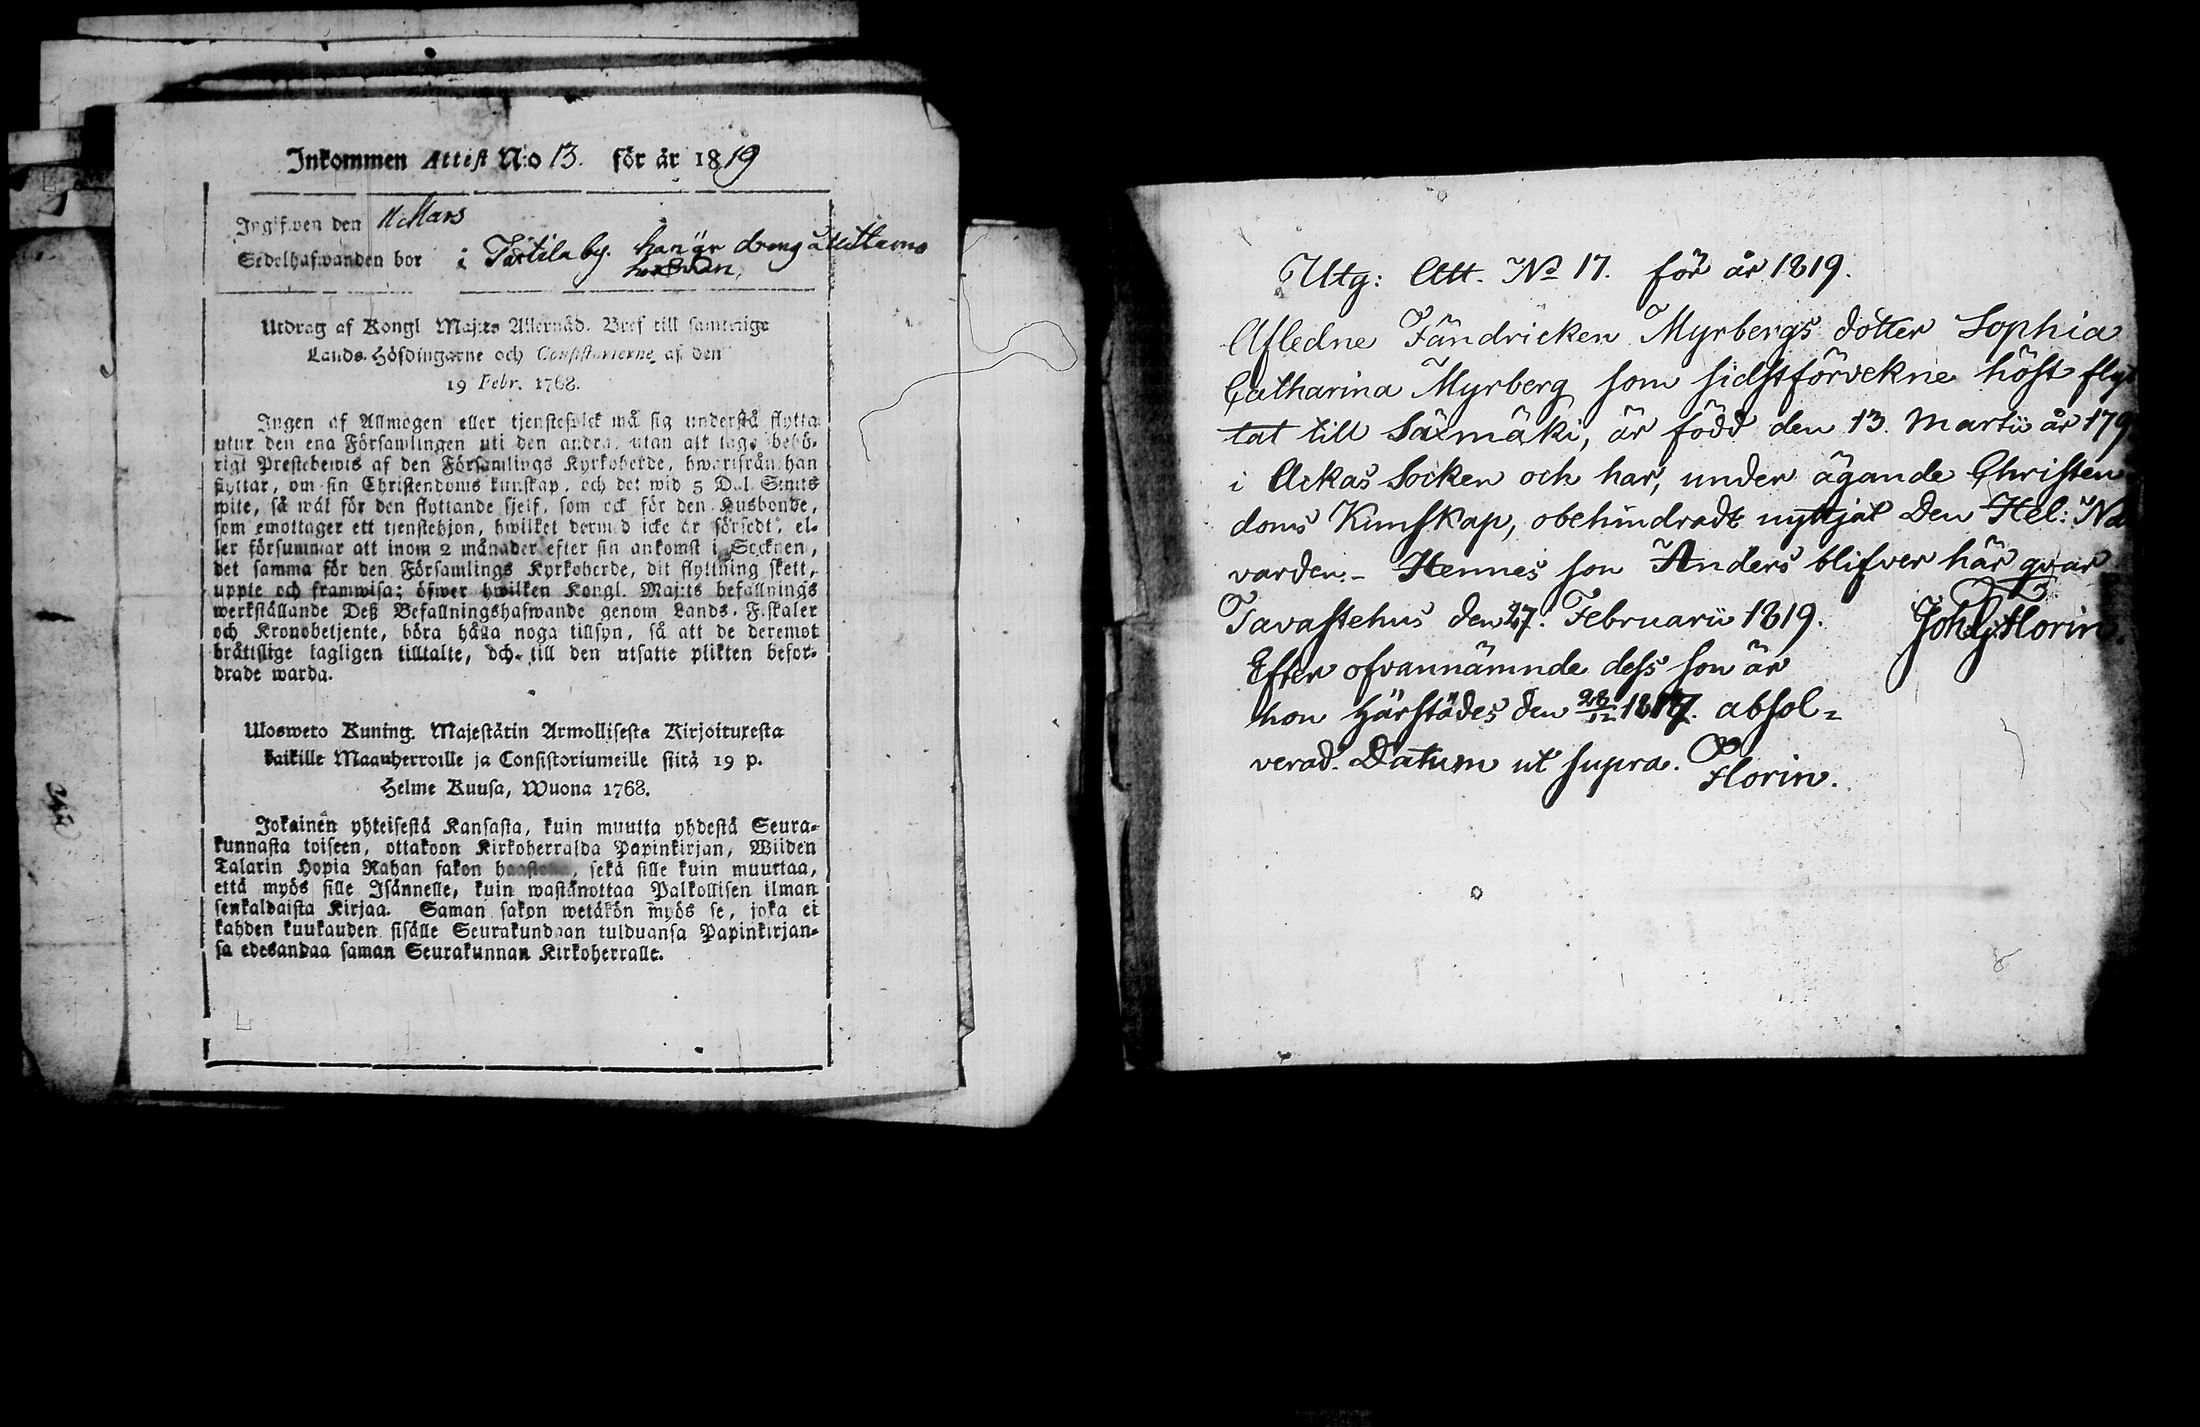 Inkommen Attest N:o 13. för år 1819
Ingifwen den 11 Mars
Sedelhafwanden bor i Tarttila by. han är dreng å
Utdrag af Kongl Maj:ts Allernåd. Bref till samtelige
Lands-Höfdingarne och Consistorierne af den
19 Febr. 1768.
Ingen af Allmogen eller tjenstefolck må sig understå flytta
utur den ena Församlingen uti den andra, utan att taga behö-
rigt Prestebewis af den Församlings Kyrkoherde, hwarifrån han
flyttar, om sin Christendoms kunskap, och det wid 5 Dal. Smts
wite, så wäl för den flyttande sjelf, som ock för den Husbonde,
som emottager ett tjenstehjon, hwilket dermed icke är försedt, el-
ler försummar att inom 2 månader efter sin ankomst i Socknen,
det samma för den Församlings Kyrkoherde, dit flyttning skett,
uppte och framwisa; öfwer hwilken Kongl. Maj:ts befallnings
werkställande Deß Befallningshafwande genom Lands-Fiskaler
och Kronobetjente, böra hålla noga tillsyn, så att de deremot
bråttslige lagligen tilltalte, och till den utsatte plikten befor-
drade warda.
Ulosweto Kuning. Majestätin Armollisesta Kirjoituxesta
kaikille Maanherroille ja Consistoriumeille siitä 19 p.
Helme Kuusa, Wuona 1768.
Jokainen yhteisestä Kansasta, kuin muutta yhdestä Seura-
kunnasta toiseen, ottakoon Kirkoherralda Papinkirjan, Wiiden
Talarin Hopia Rahan sakon haastolla, sekä sille kuin muuttaa,
että myös sille Isännelle, kuin wastanottaa Palkollisen ilman
senkaldaista Kirjaa. Saman sakon wetäkön myös se, joka ei
kahden kuukauden sisälle Seurakundaan tulduansa Papinkirjan-
sa edesandaa saman Seurakunnan Kirkoherralle.
Utg: Att. No 17. för år 1819.
Afledne Fändricken Myrbergs dotter Sophia
Catharina Myrberg som sidstförvekne höst flyt
tat till Säxmäki, är född den 13. Martii år 179
i Ackas Socken och har, under ägande Christen
doms Kunskap, obehindradt nyttjat Den Hel: Na
varden. - Hennes son Anders blifver här qvar
Tavastehus den 27. Februarii 1819. Joh. G. Florin.
Efter ofvannämnde dess son är
hon härstädes den 28/12 1817. absol=
verad. Datum ut supra. Florin.